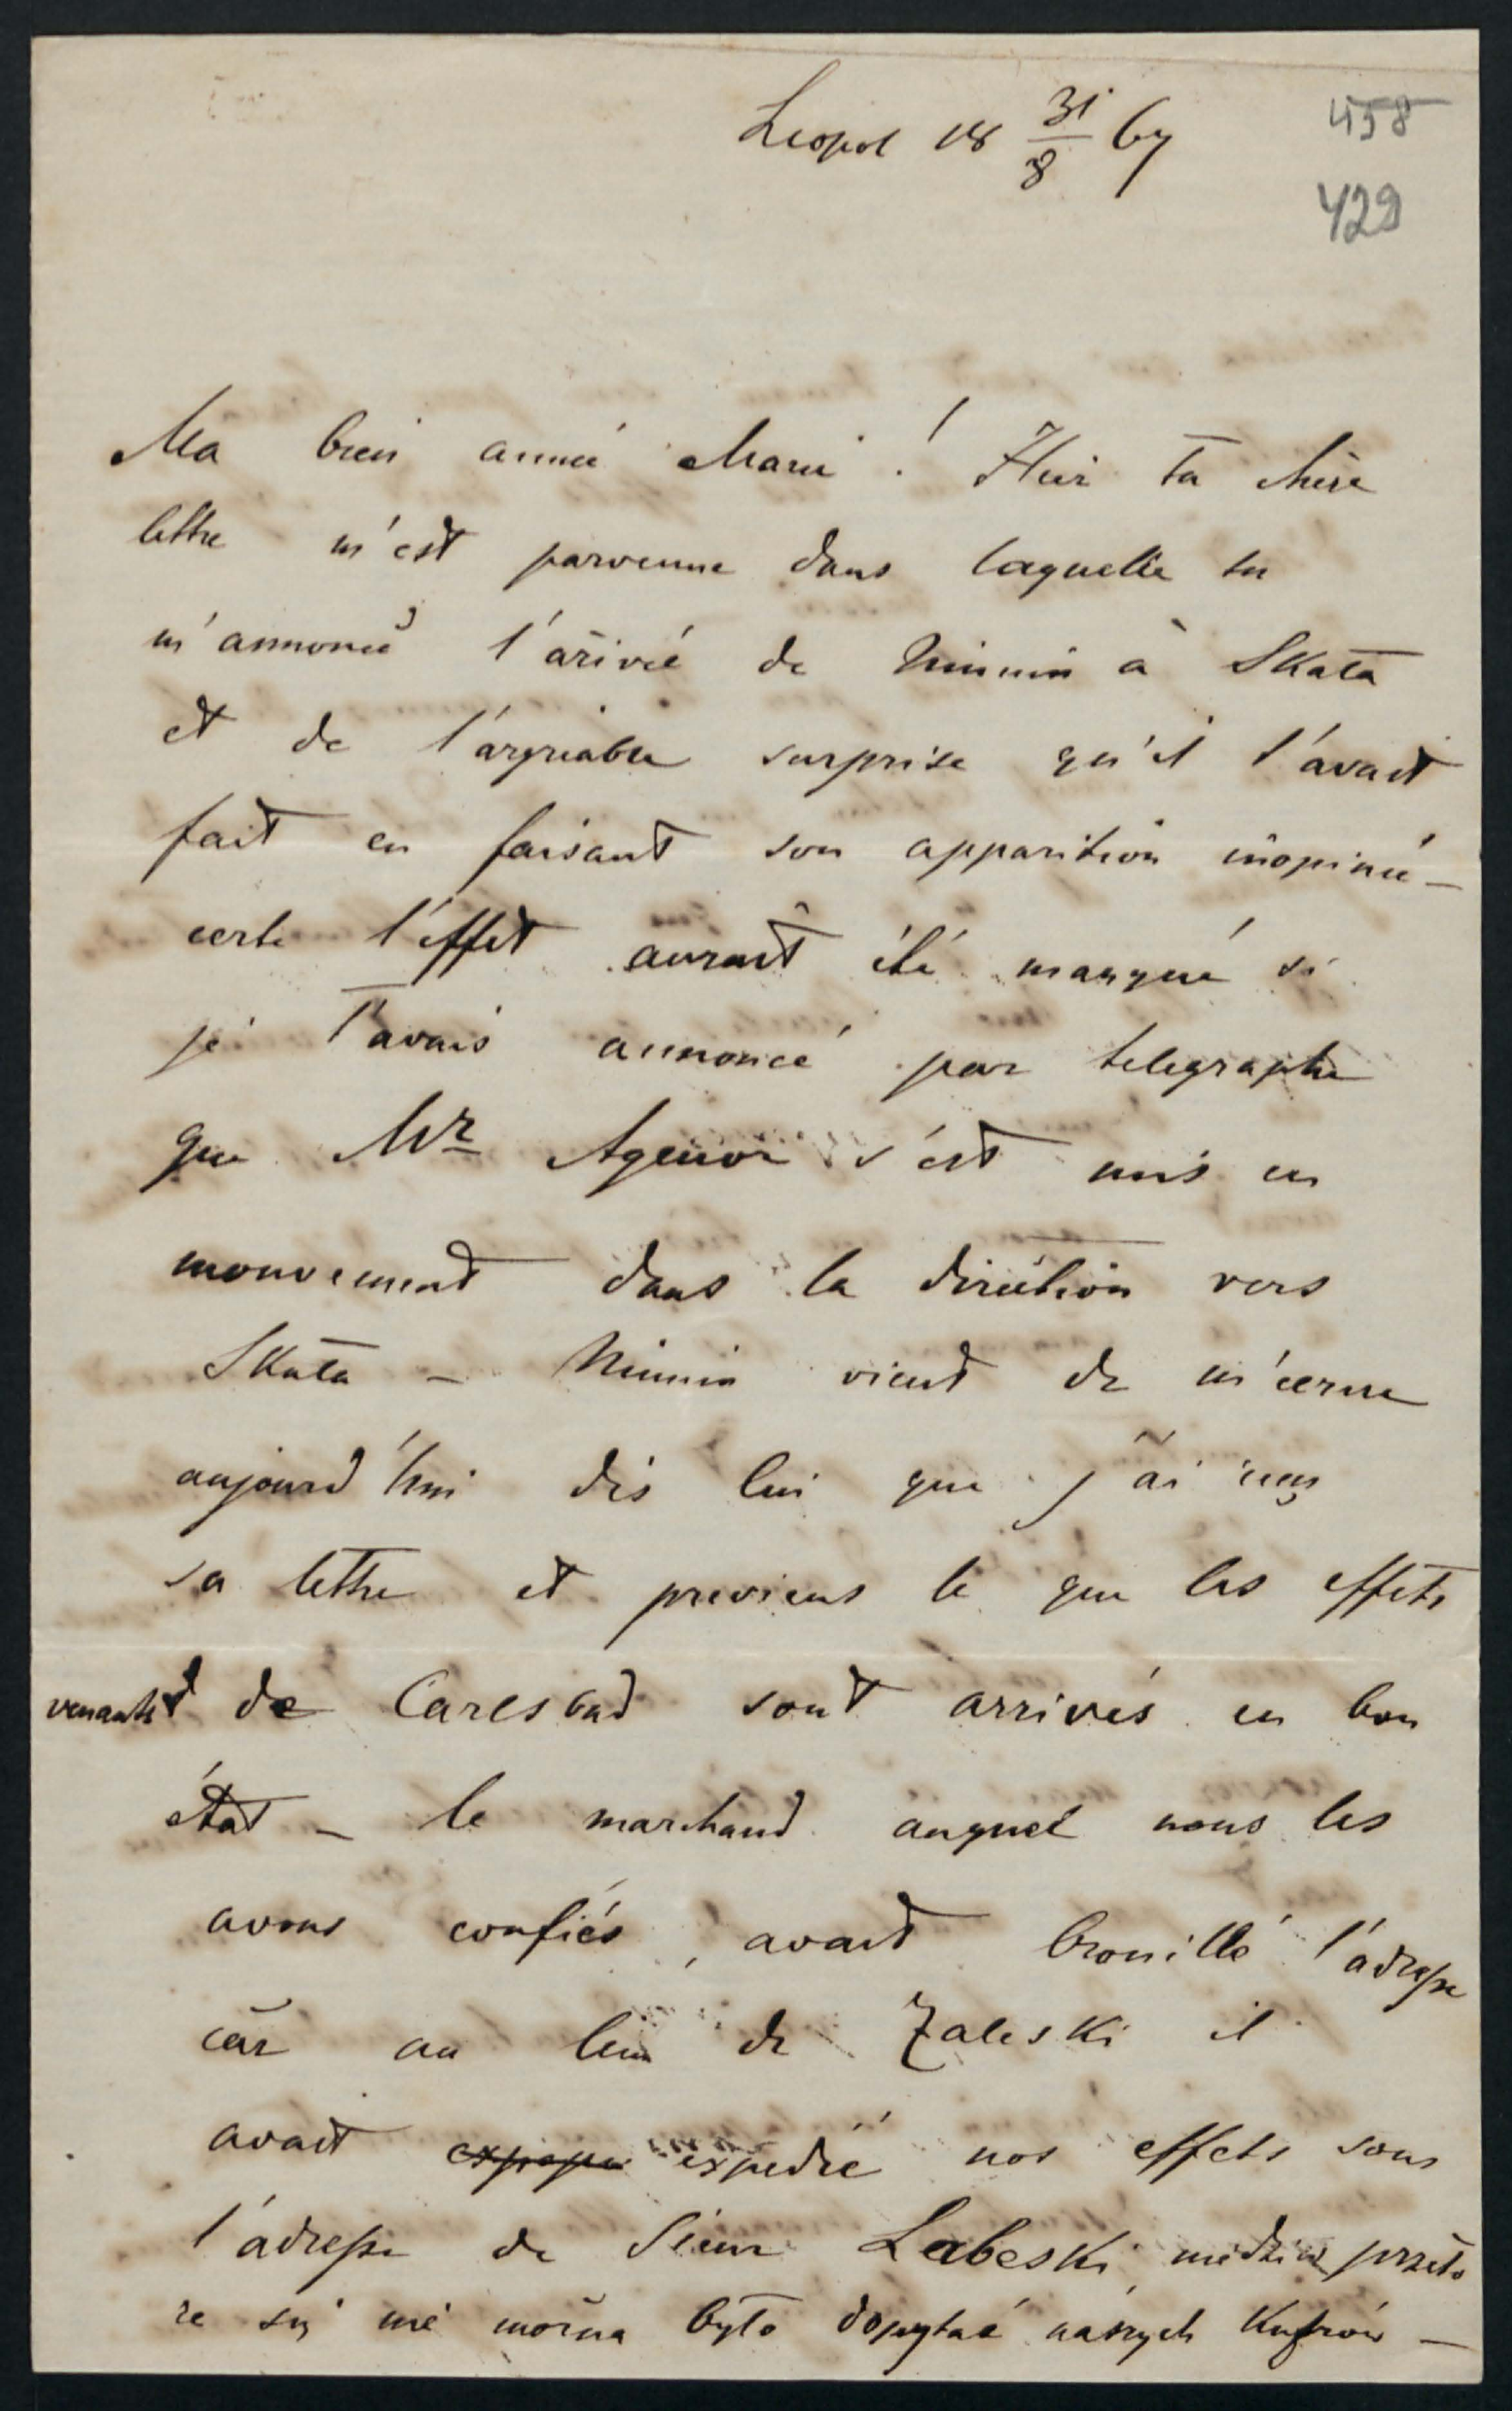 Leopol 18 31/8 67
458
429
Ma bien aimée Marie! Hier ta chère
lettre m'est parvenue dans laquelle tu
m'annonce l'arivée de Niunin à Skała
et de l'agreable surprise qu'il t'avait
fait en faisant son apparition inopinée –
certe l'effet aurait été manqué si
je t'avais annoncé par telegraphe
que Mr Agenor s'est mis en
mouvement dans la diréction vers
Skała – Niunin vient de m'ecrire
aujourd'hui dis lui que j'ai reçu
sa lettre et previens le que les effets
venants de Carlsbad sont arrivés en bon
état – le marchand auquel nous les
avons confiés, avait brouillé l'adresse
car au lieu de Zaleski il
avait expedié nos effets sous
l'adresse de Sieur Labeski, niedziw przeto
ze się nie można było dopytać naszych Kufrów –